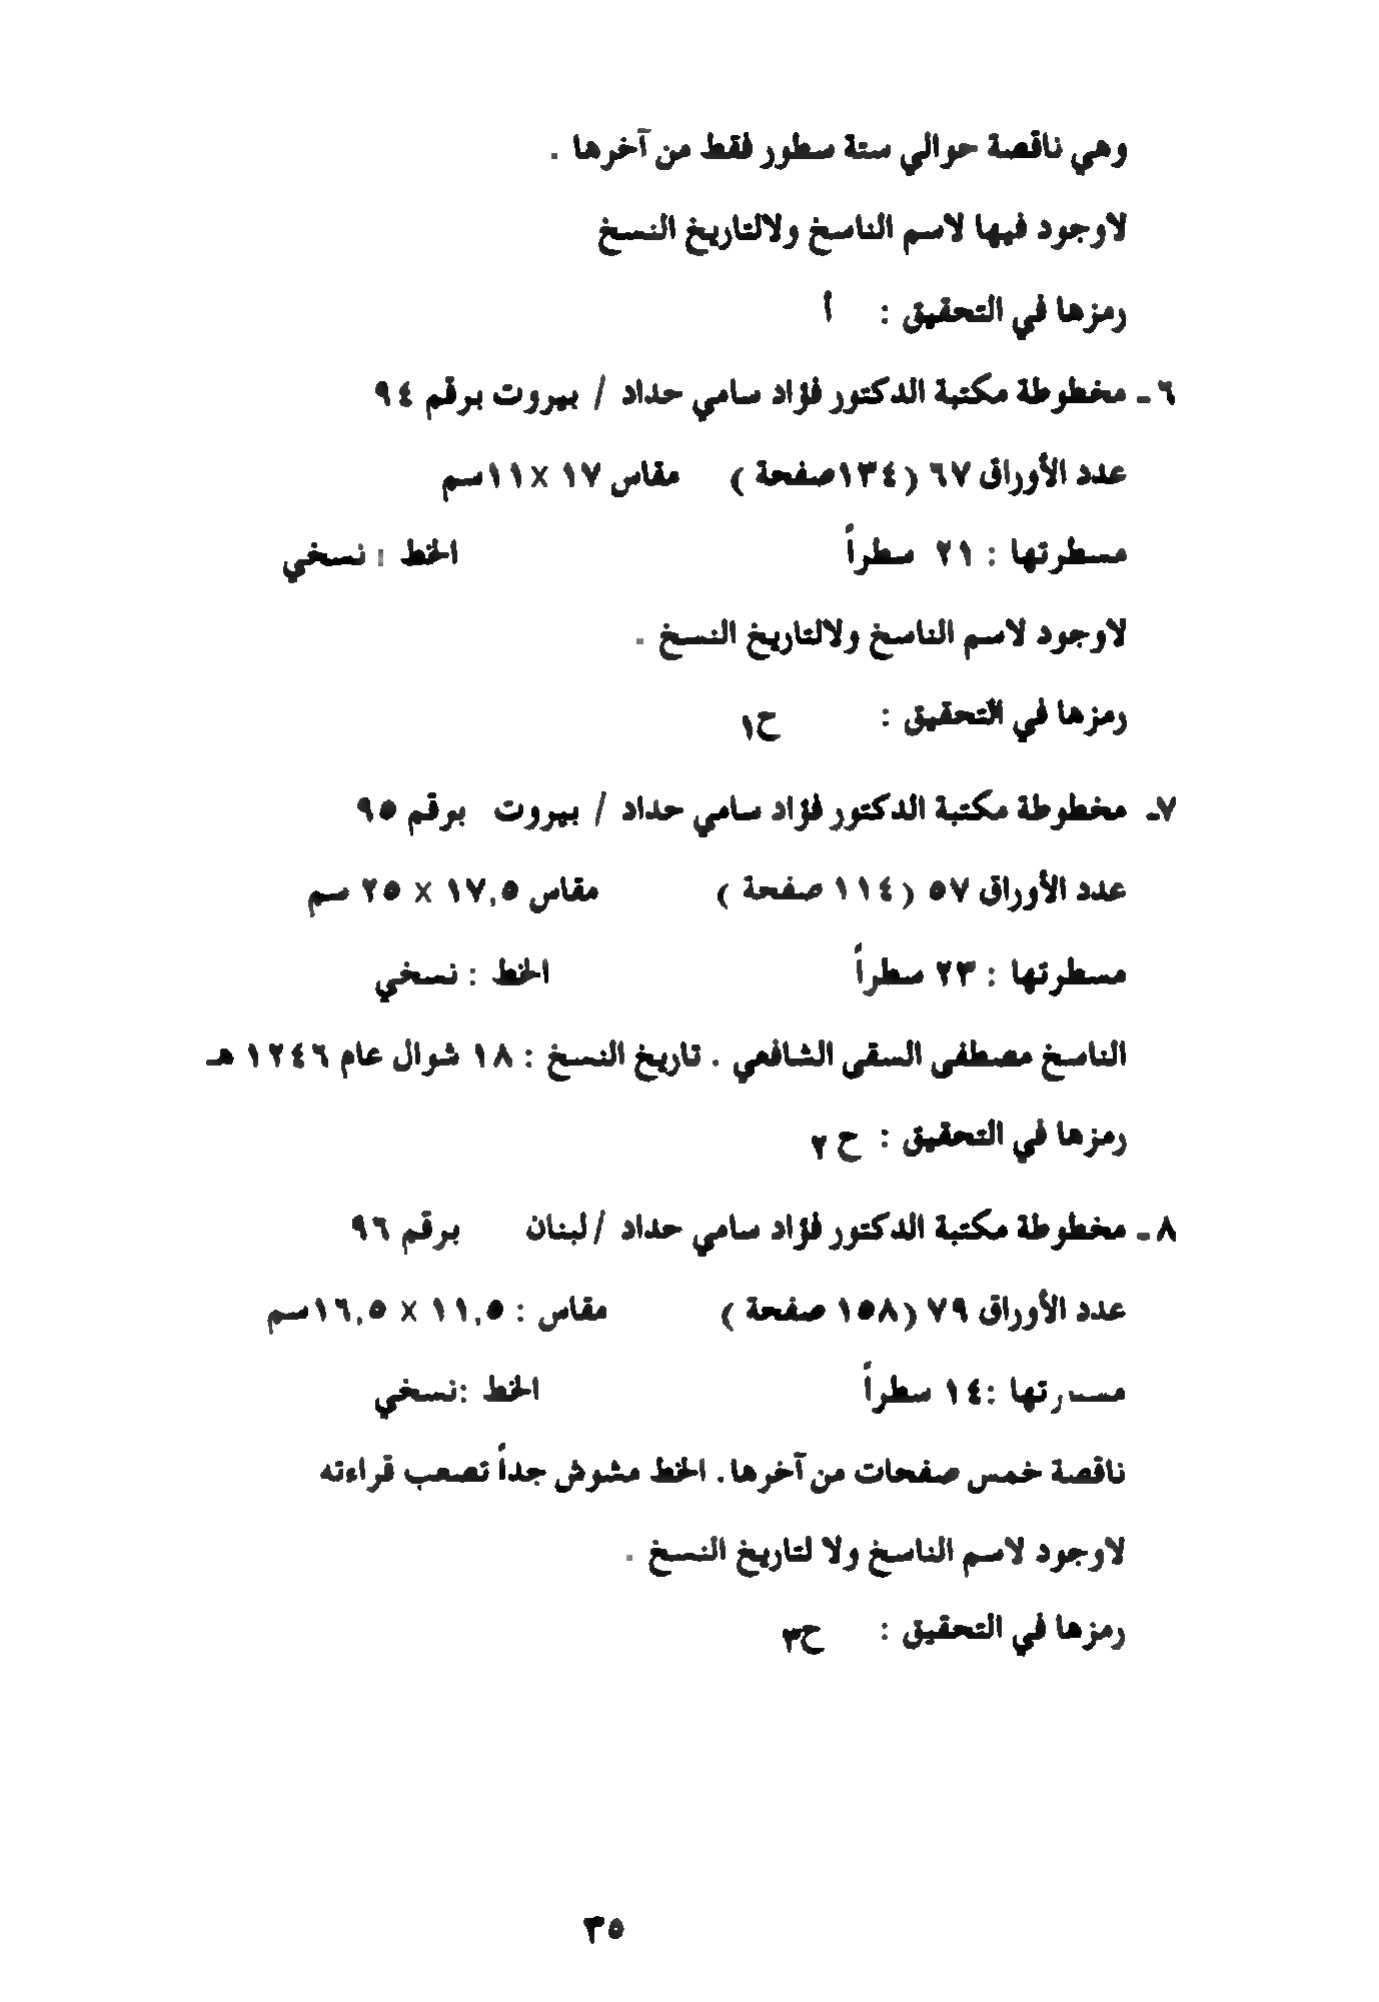 وهي ناقصة حوالي ستة سطور فقط من آخرها .
لاوجود فيها لاسم الناسخ ولالتاريخ النسخ
رمزها في التحقيق : أ
٦ ـ مخطوطة مكتبة الدكتور فؤاد سامي حداد / بيروت برقم ٩٤
عدد الأوراق ٦٧ (١٣٤صفحة ) مقاس ١٧ ×١١سم
مسطرتها : ٢١ سطراً الخط : نسخي
لاوجود لاسم الناسخ ولالتاريخ النسخ .
رمزها في التحقيق : ح١
٧ـ مخطوطة مكتبة الدكتور فؤاد سامي حداد / بيروت برقم ٩٥
عدد الأوراق ٥٧ (١١٤ صفحة ) مقاس ١٧,٥ × ٢٥ سم
مسطرتها : ٢٣ سطراً الخط : نسخي
الناسخ مصطفى السقى الشافعي . تاريخ النسخ : ١٨ شوال عام ١٢٤٦ هـ
رمزها في التحقيق : ح ٢
٨ ـ مخطوطة مكتبة الدكتور فؤاد سامي حداد /لبنان برقم ٩٦
عدد الأوراق ٧٩ (١٥٨ صفحة ) مقاس : ١١,٥ × ١٦,٥سم
مسطرتها :١٤ سطراً الخط :نسخي
ناقصة خمس صفحات من آخرها. الخط مشوش جداً تصعب قراءته
لاوجود لاسم الناسخ ولا لتاريخ النسخ .
رمزها في التحقيق : ح٣
٣٥